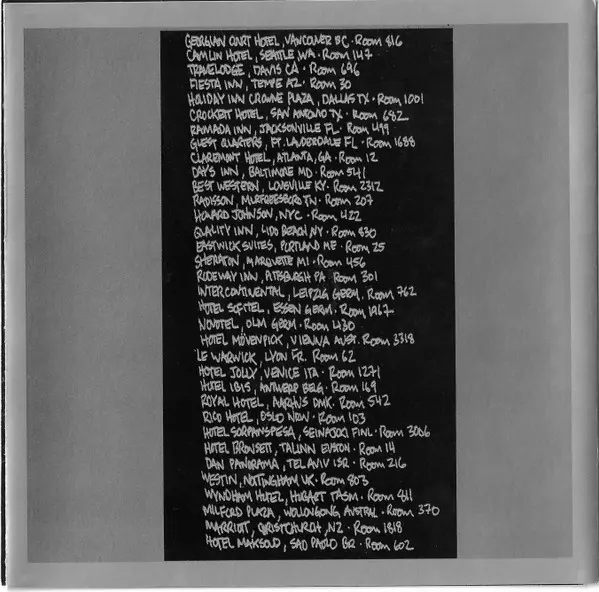 GEORGIAN COURT HOTEL, VANCOUVER BC · Room 816
CAMLIN HOTEL, SEATTLE WA · Room 147
TRAVELODGE, DAVIS CA · Room 696
FIESTA INN, TEMPE AZ · Room 30
HOLIDAY INN CROWNE PLAZA, DALLAS TX · Room 1001
CROCKETT HOTEL, SAN ANTONIO TX · Room 682
RAMADA INN, JACKSONVILLE FL · Room 499
GUEST QUARTERS, FT. LAUDERDALE FL · Room 1688
CLAREMONT HOTEL, ATLANTA, GA · Room 12
DAYS INN, BALTIMORE MD · Room 541
BEST WESTERN, LOUISVILLE KY · Room 2312
RADISSON, MURFREESBORO TN · Room 207
HOWARD JOHNSON, NYC · Room 422
QUALITY INN, LIDO BEACH NY · Room 830
EASTWICK SUITES, PORTLAND ME · Room 25
SHERATON, MARQUETTE MI · Room 456
RODEWAY INN, PITTSBURGH PA Room 301
INTERCONTINENTAL, LEIPZIG GERM. Room 762
HOTEL SOFITEL, ESSEN GERM. Room 1267
NOVOTEL, OLM GERM. · Room 430
HOTEL MÖVENPICK, VIENNA AUST. Room 3318
LE WARWICK, LYON FR. Room 62
HOTEL JOLLY, VENICE ITA · Room 1271
HOTEL IBIS, ANTWERP BELG · Room 169
ROYAL HOTEL, AARHUS DMK. Room 542
RICO HOTEL, OSLO NRW · Room 103
HOTEL SORPANSPESA, SEINAJOCI FINL · Room 3006
HOTEL BROWSETT, TALINN ESTON · Room 14
DAN PANORAMA, TEL AVIV ISR · Room 216
WESTIN, NOTTINGHAM UK · Room 803
WYNDHAM HOTEL, HOBART TASM · Room 811
MILFORD PLAZA, WOLLONGONG AUSTRAL · Room 370
MARRIOTT, CHRISTCHURCH, NZ · Room 1818
HOTEL MAKSOUD, SAO PAOLO BR · Room 602